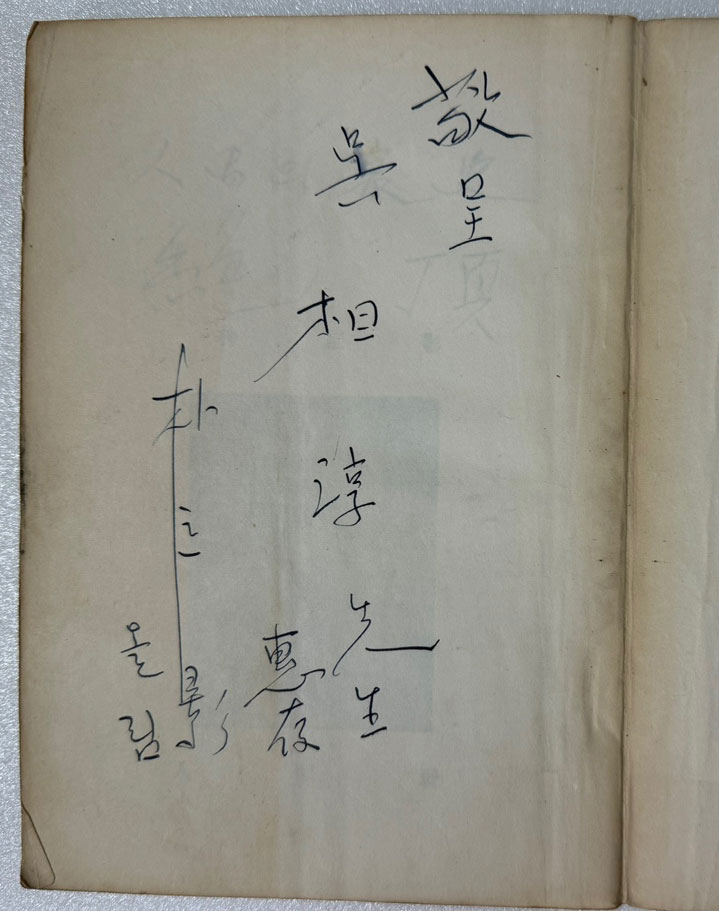 敬呈
吳相淳先生
惠存
朴巨影
올림